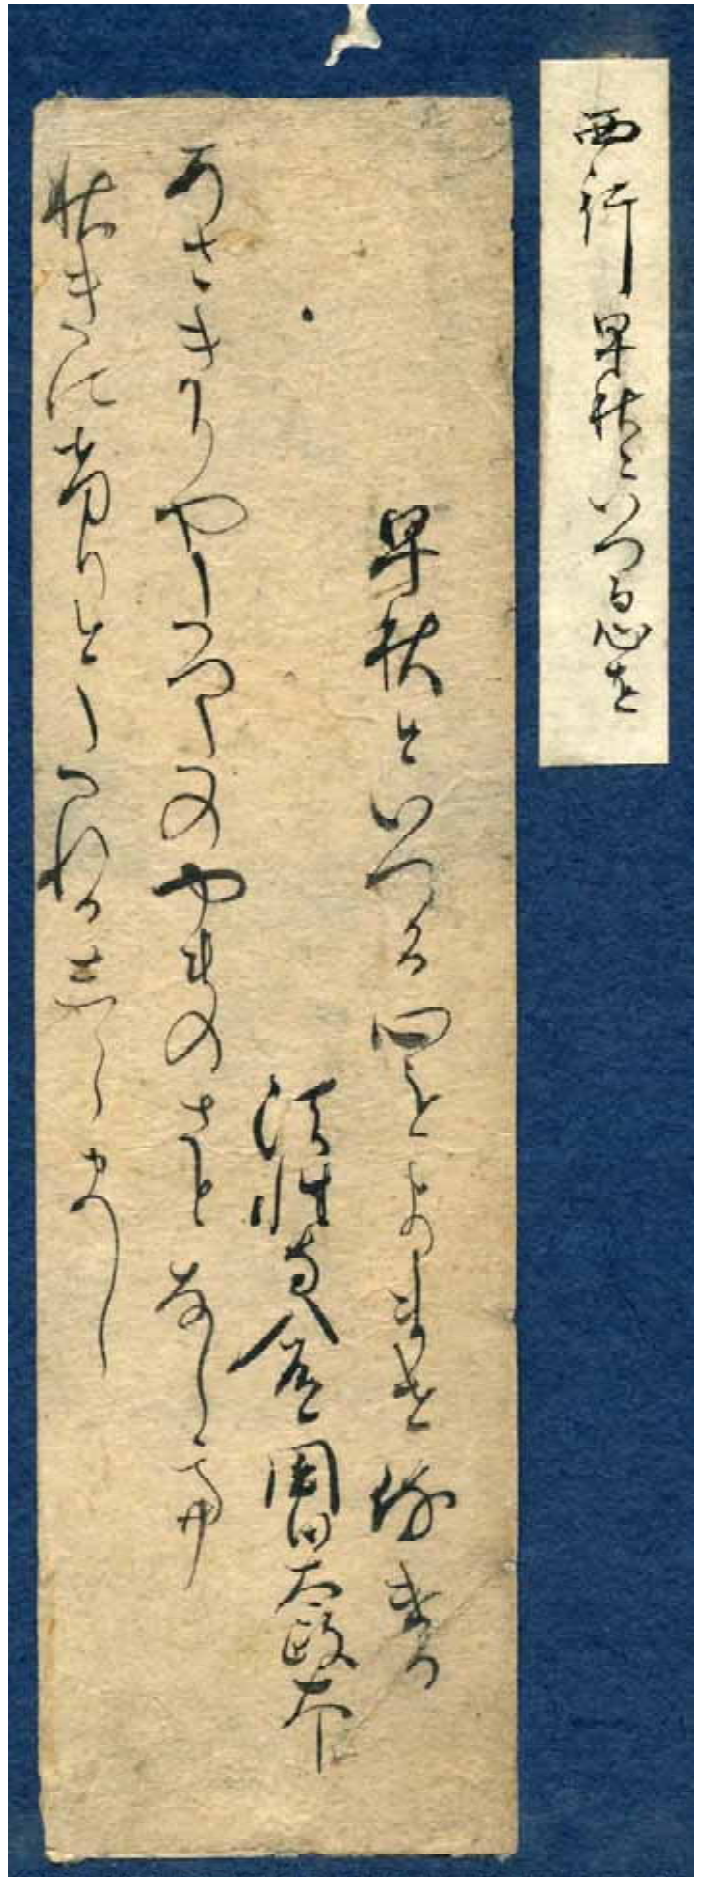 西行 早秋といへる心を
早秋といへる心をよませ給ける
法性寺入道関白太政大臣
あさきりやたつたのやまのさとならて
秋きにけりとたれかしらまし